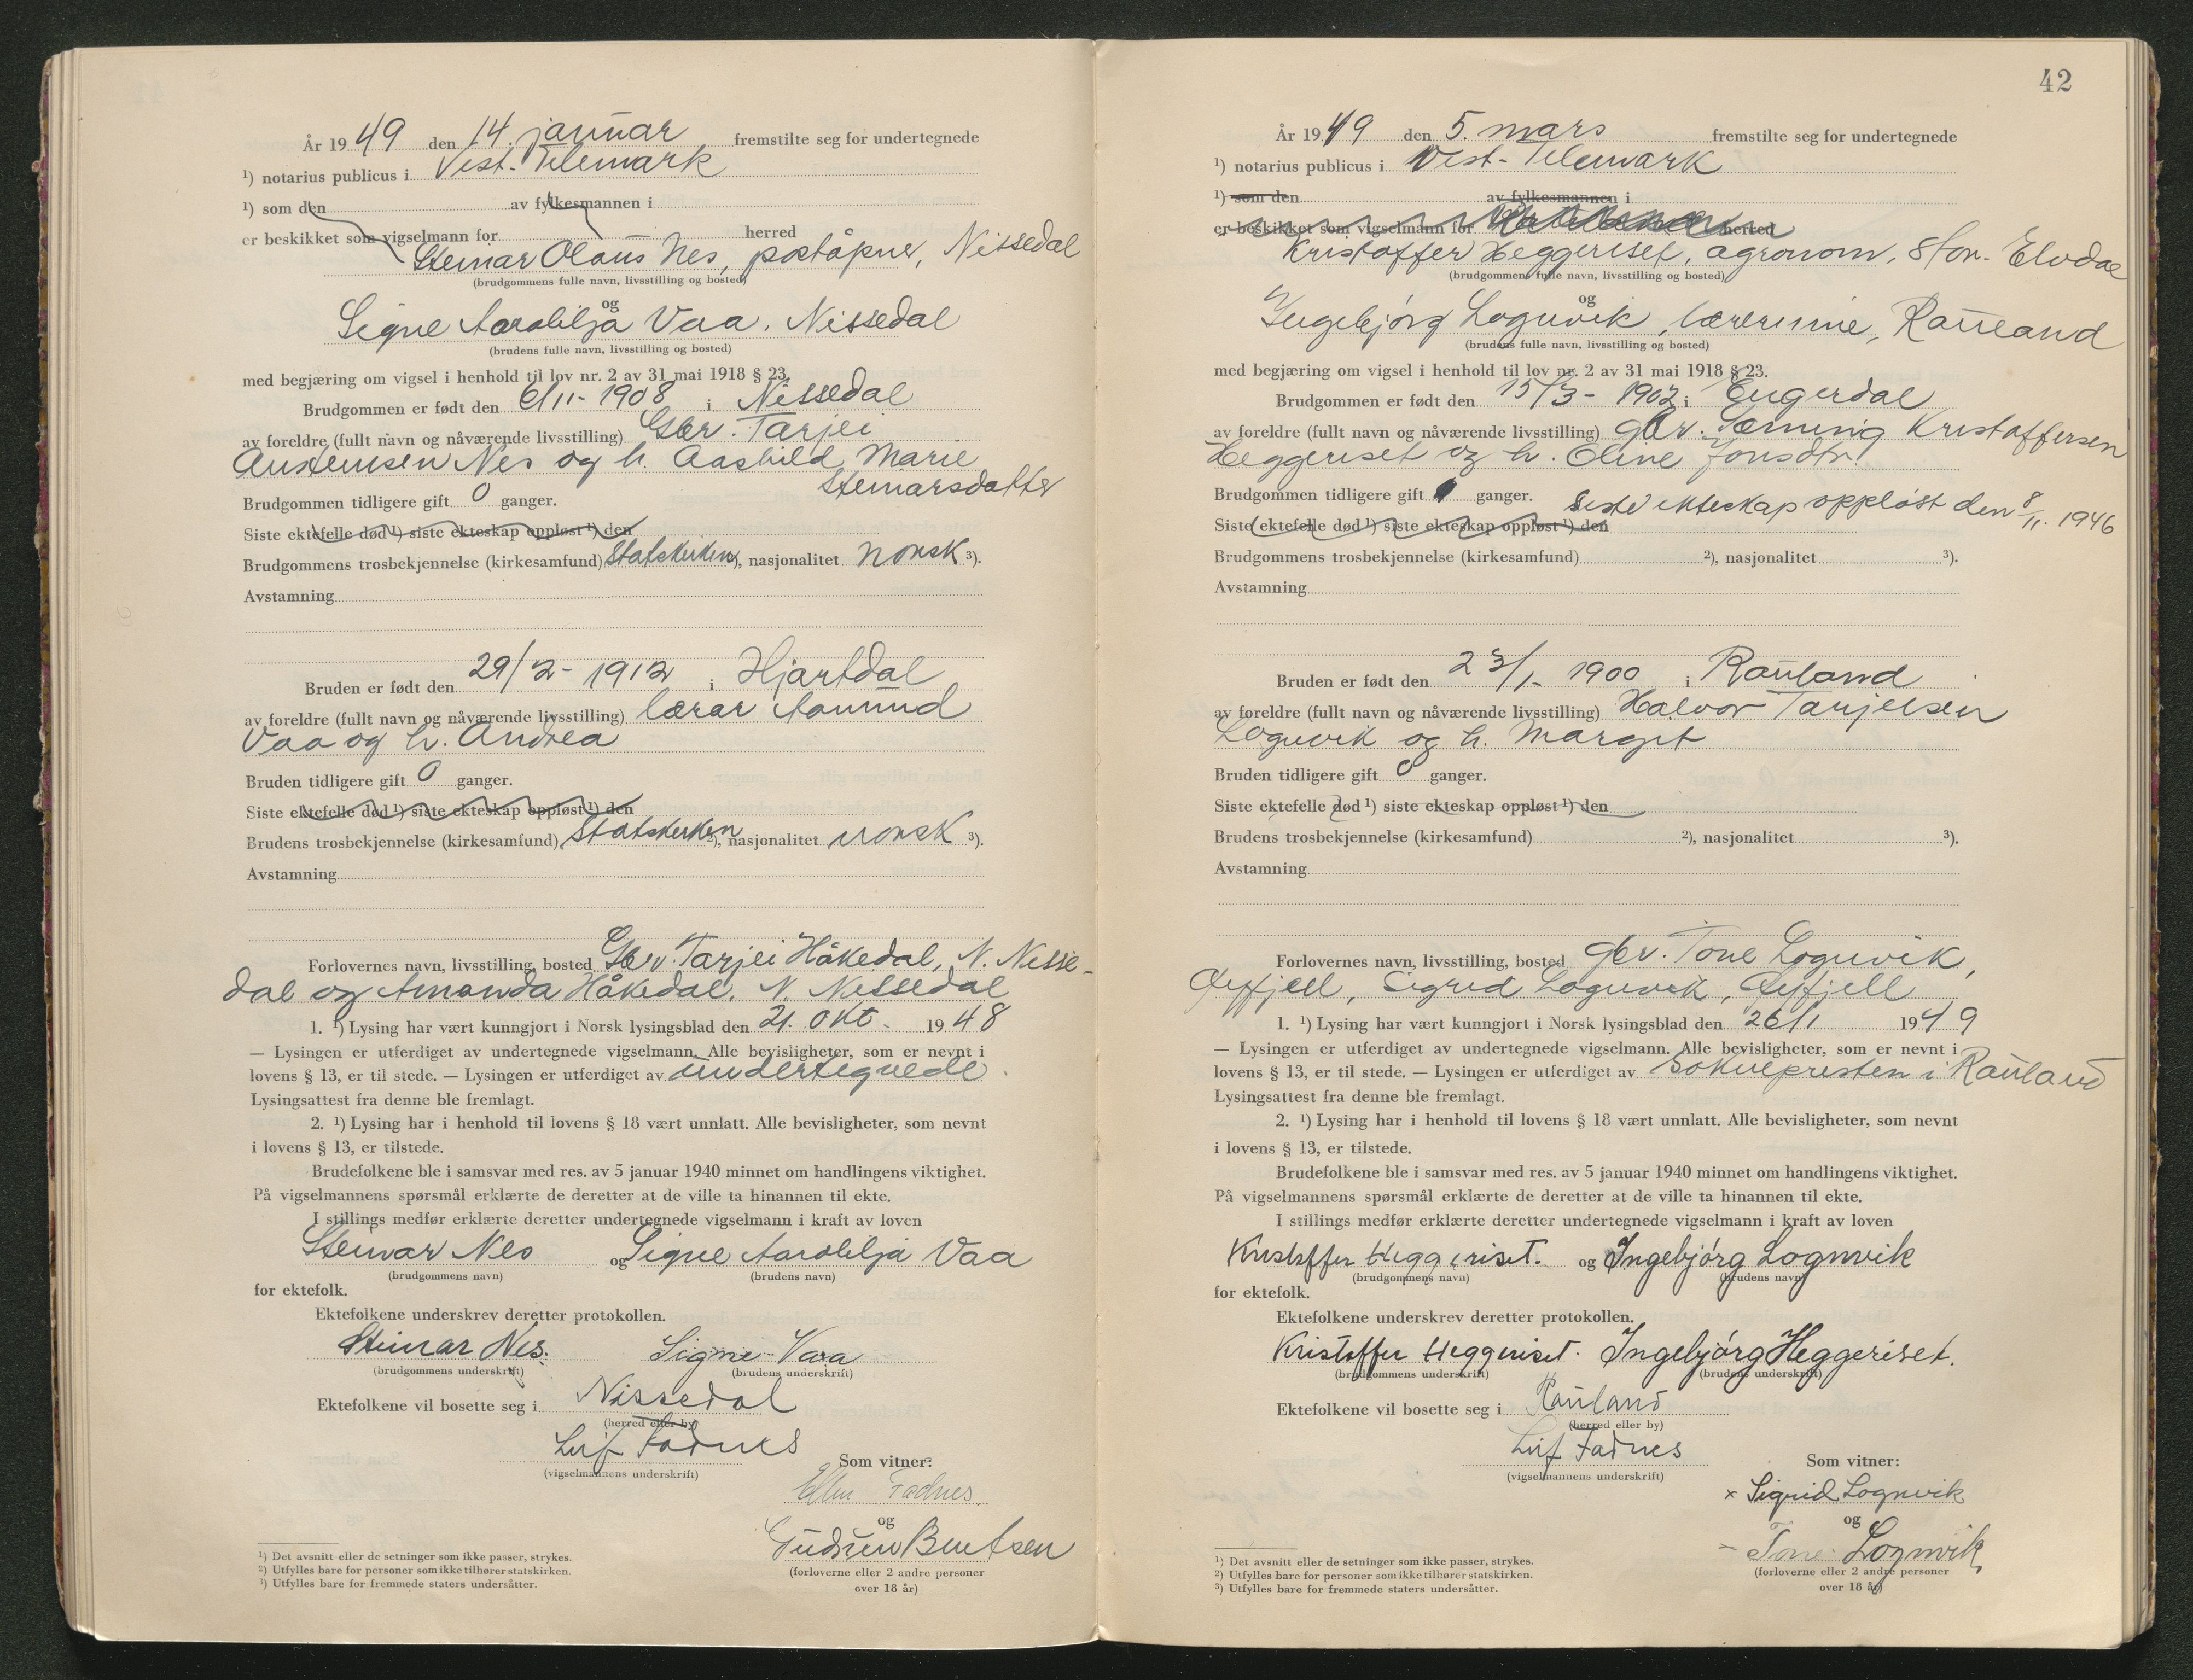 År 1949 den 14. januar fremstilte seg for undertegnede
¹) notarius publicus i Vest-Telemark
¹) som den av fylkesmannen i
er beskikket som vigselmann for herred
Steinar Olaus Nes, poståpner, Nissedal
(brudgommens fulle navn, livsstilling og bosted)
og
Signe Vaa, Nissedal
(brudens fulle navn, livsstilling og bosted)
med begjæring om vigsel i henhold til lov nr. 2 av 31 mai 1918 § 23.
Brudgommen er født den 6/11-1908 i Nissedal
av foreldre (fullt navn og nåværende livsstilling) Gbr. Tarjei
Austensen Nes og h. Aashild Marie
Steinarsdatter
Brudgommen tidligere gift 0 ganger.
Siste ektefelle død ¹) siste ekteskap oppløst ¹) den
Brudgommens trosbekjennelse (kirkesamfund) Statskirken ²), nasjonalitet norsk ³).
Avstamning
Bruden er født den 29/2-1912 i Hjartdal
av foreldre (fullt navn og nåværende livsstilling) lærar Aamund
Vaa og h. Andrea
Bruden tidligere gift 0 ganger.
Siste ektefelle død ¹) siste ekteskap oppløst ¹) den
Brudens trosbekjennelse (kirkesamfund) Statskirken ²), nasjonalitet norsk ³).
Avstamning
Forlovernes navn, livsstilling, bosted Gbr. Tarjei Håkedal, N. Nisse-
dal og Amanda Håkedal, N. Nissedal
1. ¹) Lysing har vært kunngjort i Norsk lysingsblad den 21. okt. 1948
— Lysingen er utferdiget av undertegnede vigselmann. Alle bevisligheter, som er nevnt i
lovens § 13, er til stede. — Lysingen er utferdiget av undertegnede.
Lysingsattest fra denne ble fremlagt.
2. ¹) Lysing har i henhold til lovens § 18 vært unnlatt. Alle bevisligheter, som nevnt
i lovens § 13, er tilstede.
Brudefolkene ble i samsvar med res. av 5 januar 1940 minnet om handlingens viktighet.
På vigselmannens spørsmål erklærte de deretter at de ville ta hinannen til ekte.
I stillings medfør erklærte deretter undertegnede vigselmann i kraft av loven
Steinar Nes og Signe Vaa
(brudgommens navn) (brudens navn)
for ektefolk.
Ektefolkene underskrev deretter protokollen.
Steinar Nes. Signe Vaa
(brudgommens underskrift) (brudens underskrift)
Ektefolkene vil bosette seg i Nissedal
(herred eller by)
Leif Fadnes
(vigselmannens underskrift)
Som vitner:
Ellen Fadnes.
og
Gudrun Bentsen
(forloverne eller 2 andre personer
over 18 år)
¹) Det avsnitt eller de setninger som ikke passer, strykes.
²) Utfylles bare for personer som ikke tilhører statskirken.
³) Utfylles bare for fremmede staters undersåtter.
42
År 1949 den 5. mars fremstilte seg for undertegnede
¹) notarius publicus i Vest-Telemark
¹) som den av fylkesmannen i
er beskikket som vigselmann for herred
Kristoffer Heggeriset, agronom, Stor-Elvdal
(brudgommens fulle navn, livsstilling og bosted)
og
Ingebjørg Lognvik, lærerinne, Rauland
(brudens fulle navn, livsstilling og bosted)
med begjæring om vigsel i henhold til lov nr. 2 av 31 mai 1918 § 23.
Brudgommen er født den 15/3-1902 i Engerdal
av foreldre (fullt navn og nåværende livsstilling) gbr. Sæming Kristoffersen
Heggeriset og h. Oline Jonsdtr.
Brudgommen tidligere gift 1 ganger. Siste ekteskap oppløst den 8/11. 1946
Siste ektefelle død ¹) siste ekteskap oppløst ¹) den
Brudgommens trosbekjennelse (kirkesamfund) ²), nasjonalitet ³).
Avstamning
Bruden er født den 23/1-1900 i Rauland
av foreldre (fullt navn og nåværende livsstilling) Halvor Tarjeisen
Lognvik og h. Margit
Bruden tidligere gift 0 ganger.
Siste ektefelle død ¹) siste ekteskap oppløst ¹) den
Brudens trosbekjennelse (kirkesamfund) ²), nasjonalitet ³).
Avstamning
Forlovernes navn, livsstilling, bosted gbr. Tone Lognvik,
Øyfjell, Sigrid Lognvik, Øyfjell
1. ¹) Lysing har vært kunngjort i Norsk lysingsblad den 26/1 1949
— Lysingen er utferdiget av undertegnede vigselmann. Alle bevisligheter, som er nevnt i
lovens § 13, er til stede. — Lysingen er utferdiget av soknepresten i Rauland
Lysingsattest fra denne ble fremlagt.
2. ¹) Lysing har i henhold til lovens § 18 vært unnlatt. Alle bevisligheter, som nevnt
i lovens § 13, er tilstede.
Brudefolkene ble i samsvar med res. av 5 januar 1940 minnet om handlingens viktighet.
På vigselmannens spørsmål erklærte de deretter at de ville ta hinannen til ekte.
I stillings medfør erklærte deretter undertegnede vigselmann i kraft av loven
Kristoffer Heggeriset. og Ingebjørg Lognvik
(brudgommens navn) (brudens navn)
for ektefolk.
Ektefolkene underskrev deretter protokollen.
Kristoffer Heggeriset. Ingebjørg Heggeriset.
(brudgommens underskrift) (brudens underskrift)
Ektefolkene vil bosette seg i Rauland
(herred eller by)
Leif Fadnes
(vigselmannens underskrift)
Som vitner:
x Sigrid Lognvik
og
Tone Lognvik
(forloverne eller 2 andre personer
over 18 år)
¹) Det avsnitt eller de setninger som ikke passer, strykes.
²) Utfylles bare for personer som ikke tilhører statskirken.
³) Utfylles bare for fremmede staters undersåtter.